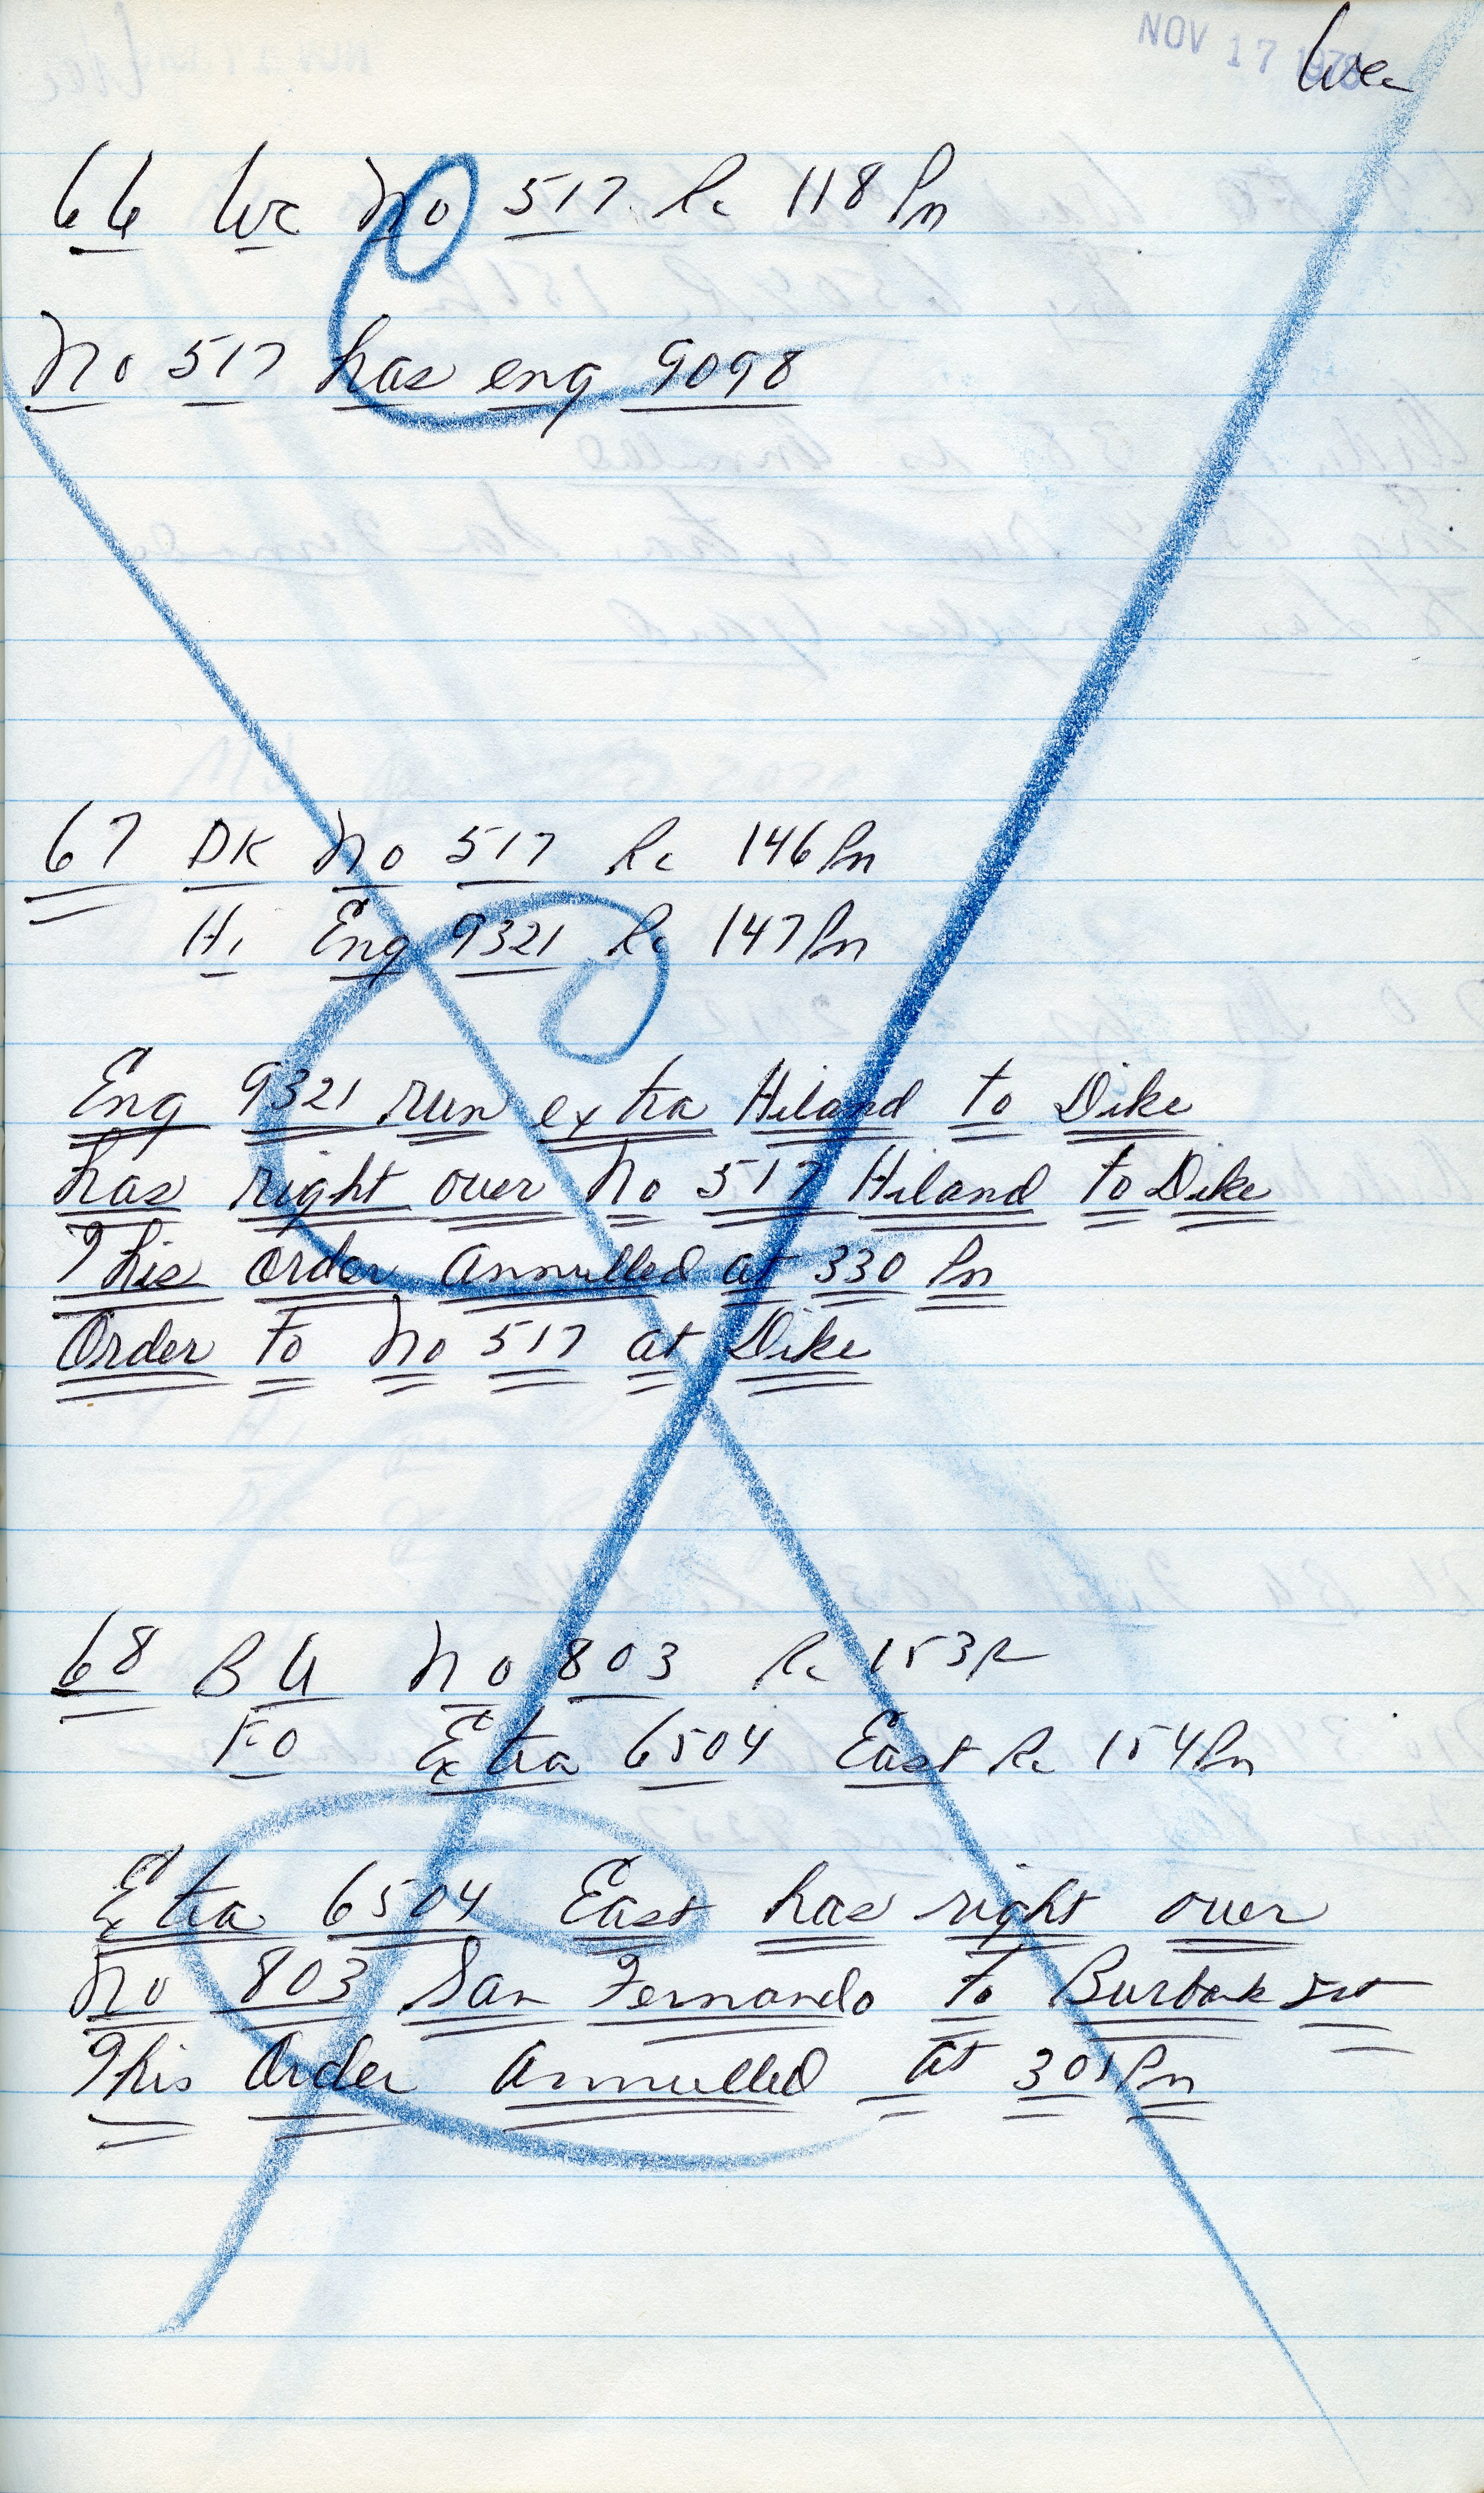 NOV 17 1978
66 No 517 Rc 118 Pm
No 517 has eng 9098
67 DK No 517 Rc 146 Pm
Hi Eng 9321 Rc 147 Pm
Eng 9321 run extra Hiland to Dike
has right over No 517 Hiland to Dike
This order annulled at 330 Pm
Order to No 517 at Dike
68 BU No 803 Rc 153 P
FO Extra 6504 East Rc 154 Pm
Extra 6504 East has right over
No 803 San Fernando to Burbank
This order annulled at 301 Pm